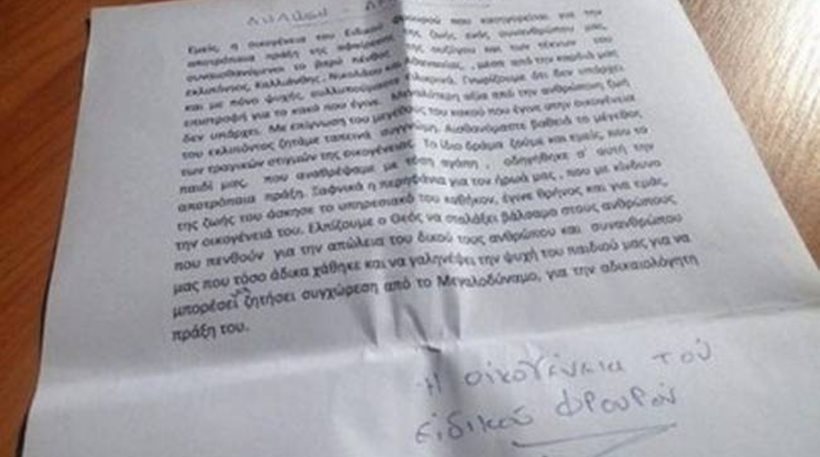 ΔΗΛΩΣΗ -
Εμείς, η οικογένεια του Ειδικού φρουρού που κατηγορείται για την
αποτρόπαια πράξη της αφαίρεσης της ζωής ενός συνανθρώπου μας,
συναισθανόμενοι το βαρύ πένθος της συζύγου και των τέκνων του
εκλιπόντος, Καλλιάνθης, Νικολάου και, μέσα από την καρδιά μας
και με πόνο ψυχής, συλλυπούμαστε ειλικρινά. Γνωρίζουμε ότι δεν υπάρχει
επιστροφή για το κακό που έγινε. Μεγαλύτερη αξία από την ανθρώπινη ζωή
δεν υπάρχει. Με επίγνωση του μεγέθους του κακού που έγινε στην οικογένεια
του εκλιπόντος ζητάμε ταπεινά συγγνώμη. Αισθανόμαστε βαθειά το μέγεθος
των τραγικών στιγμών της οικογένειας. Το ίδιο δράμα ζούμε και εμείς, που το
παιδί μας, που αναθρέψαμε με τόση αγάπη, οδηγήθηκε σ' αυτή την
αποτρόπαια πράξη. Ξαφνικά η περηφάνια για τον ήρωά μας, που με κίνδυνο
της ζωής του άσκησε το υπηρεσιακό του καθήκον, έγινε θρήνος και για εμάς,
την οικογένειά του. Ελπίζουμε ο Θεός να σταλάξει βάλσαμο στους ανθρώπους
που πενθούν για την απώλεια του δικού τους ανθρώπου και συνανθρώπου
μας που τόσο άδικα χάθηκε και να γαληνέψει την ψυχή του παιδιού μας για να
μπορέσει να ζητήσει συγχώρεση από το Μεγαλοδύναμο, για την αδικαιολόγητη
πράξη του.
Η οικογένεια του
ειδικού φρουρού